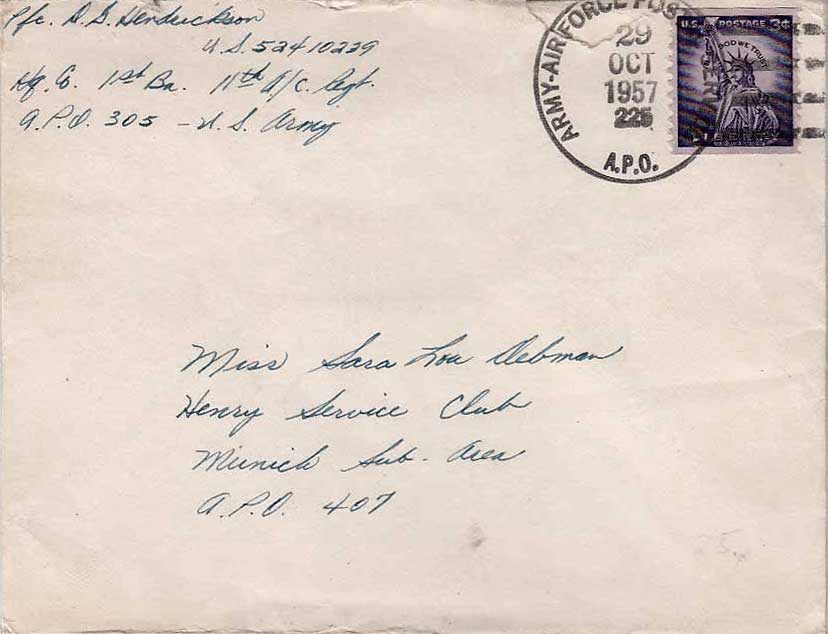 Pfc. D. G. Hendrickson
U.S. 52410229
Hq. Co. 1st Bn. 11th A/C Regt.
A.P.O. 305 - U.S. Army
ARMY-AIR FORCE POSTAL SERVICE
29
OCT
1957
225
A.P.O.
U.S. POSTAGE 3¢
IN GOD WE TRUST
LIBERTY
Miss Sara Lou Debman
Henry Service Club
Munich Sub-Area
A.P.O. 407